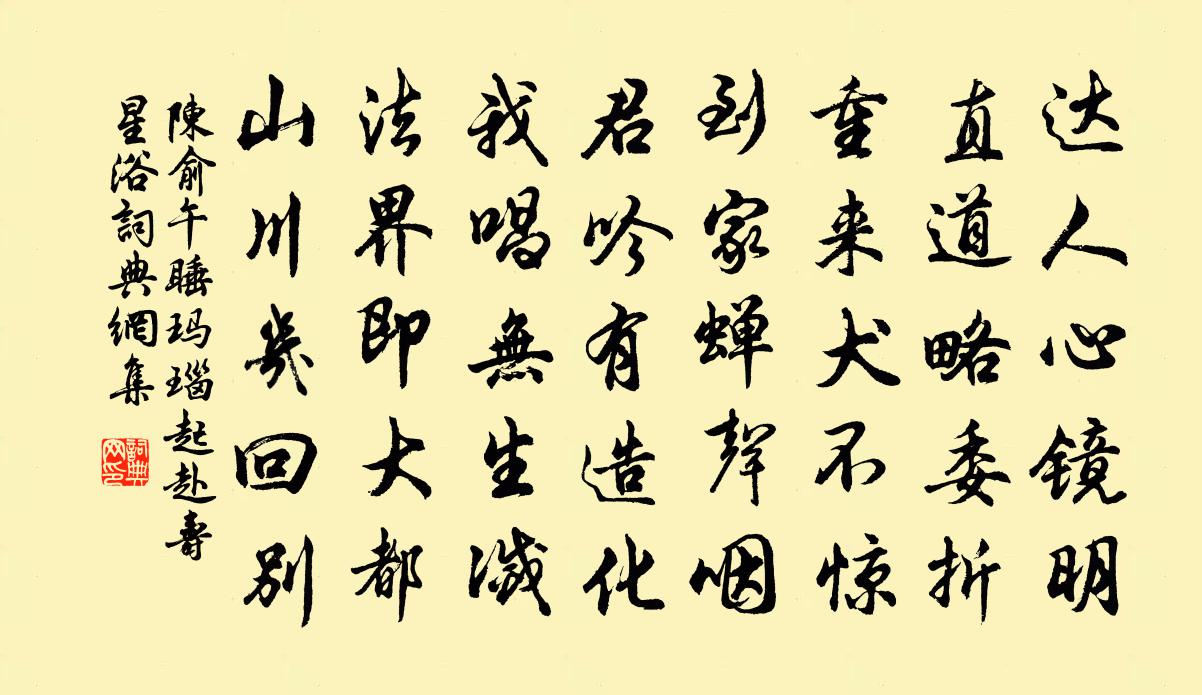 达人心镜明
直道略委折
重来犬不惊
到家蝉声咽
君吟有造化
我唱無生滅
法界即大都
山川幾回别
陳俞午睡玛瑙起赴壽
星浴詞典網集
詞典网印